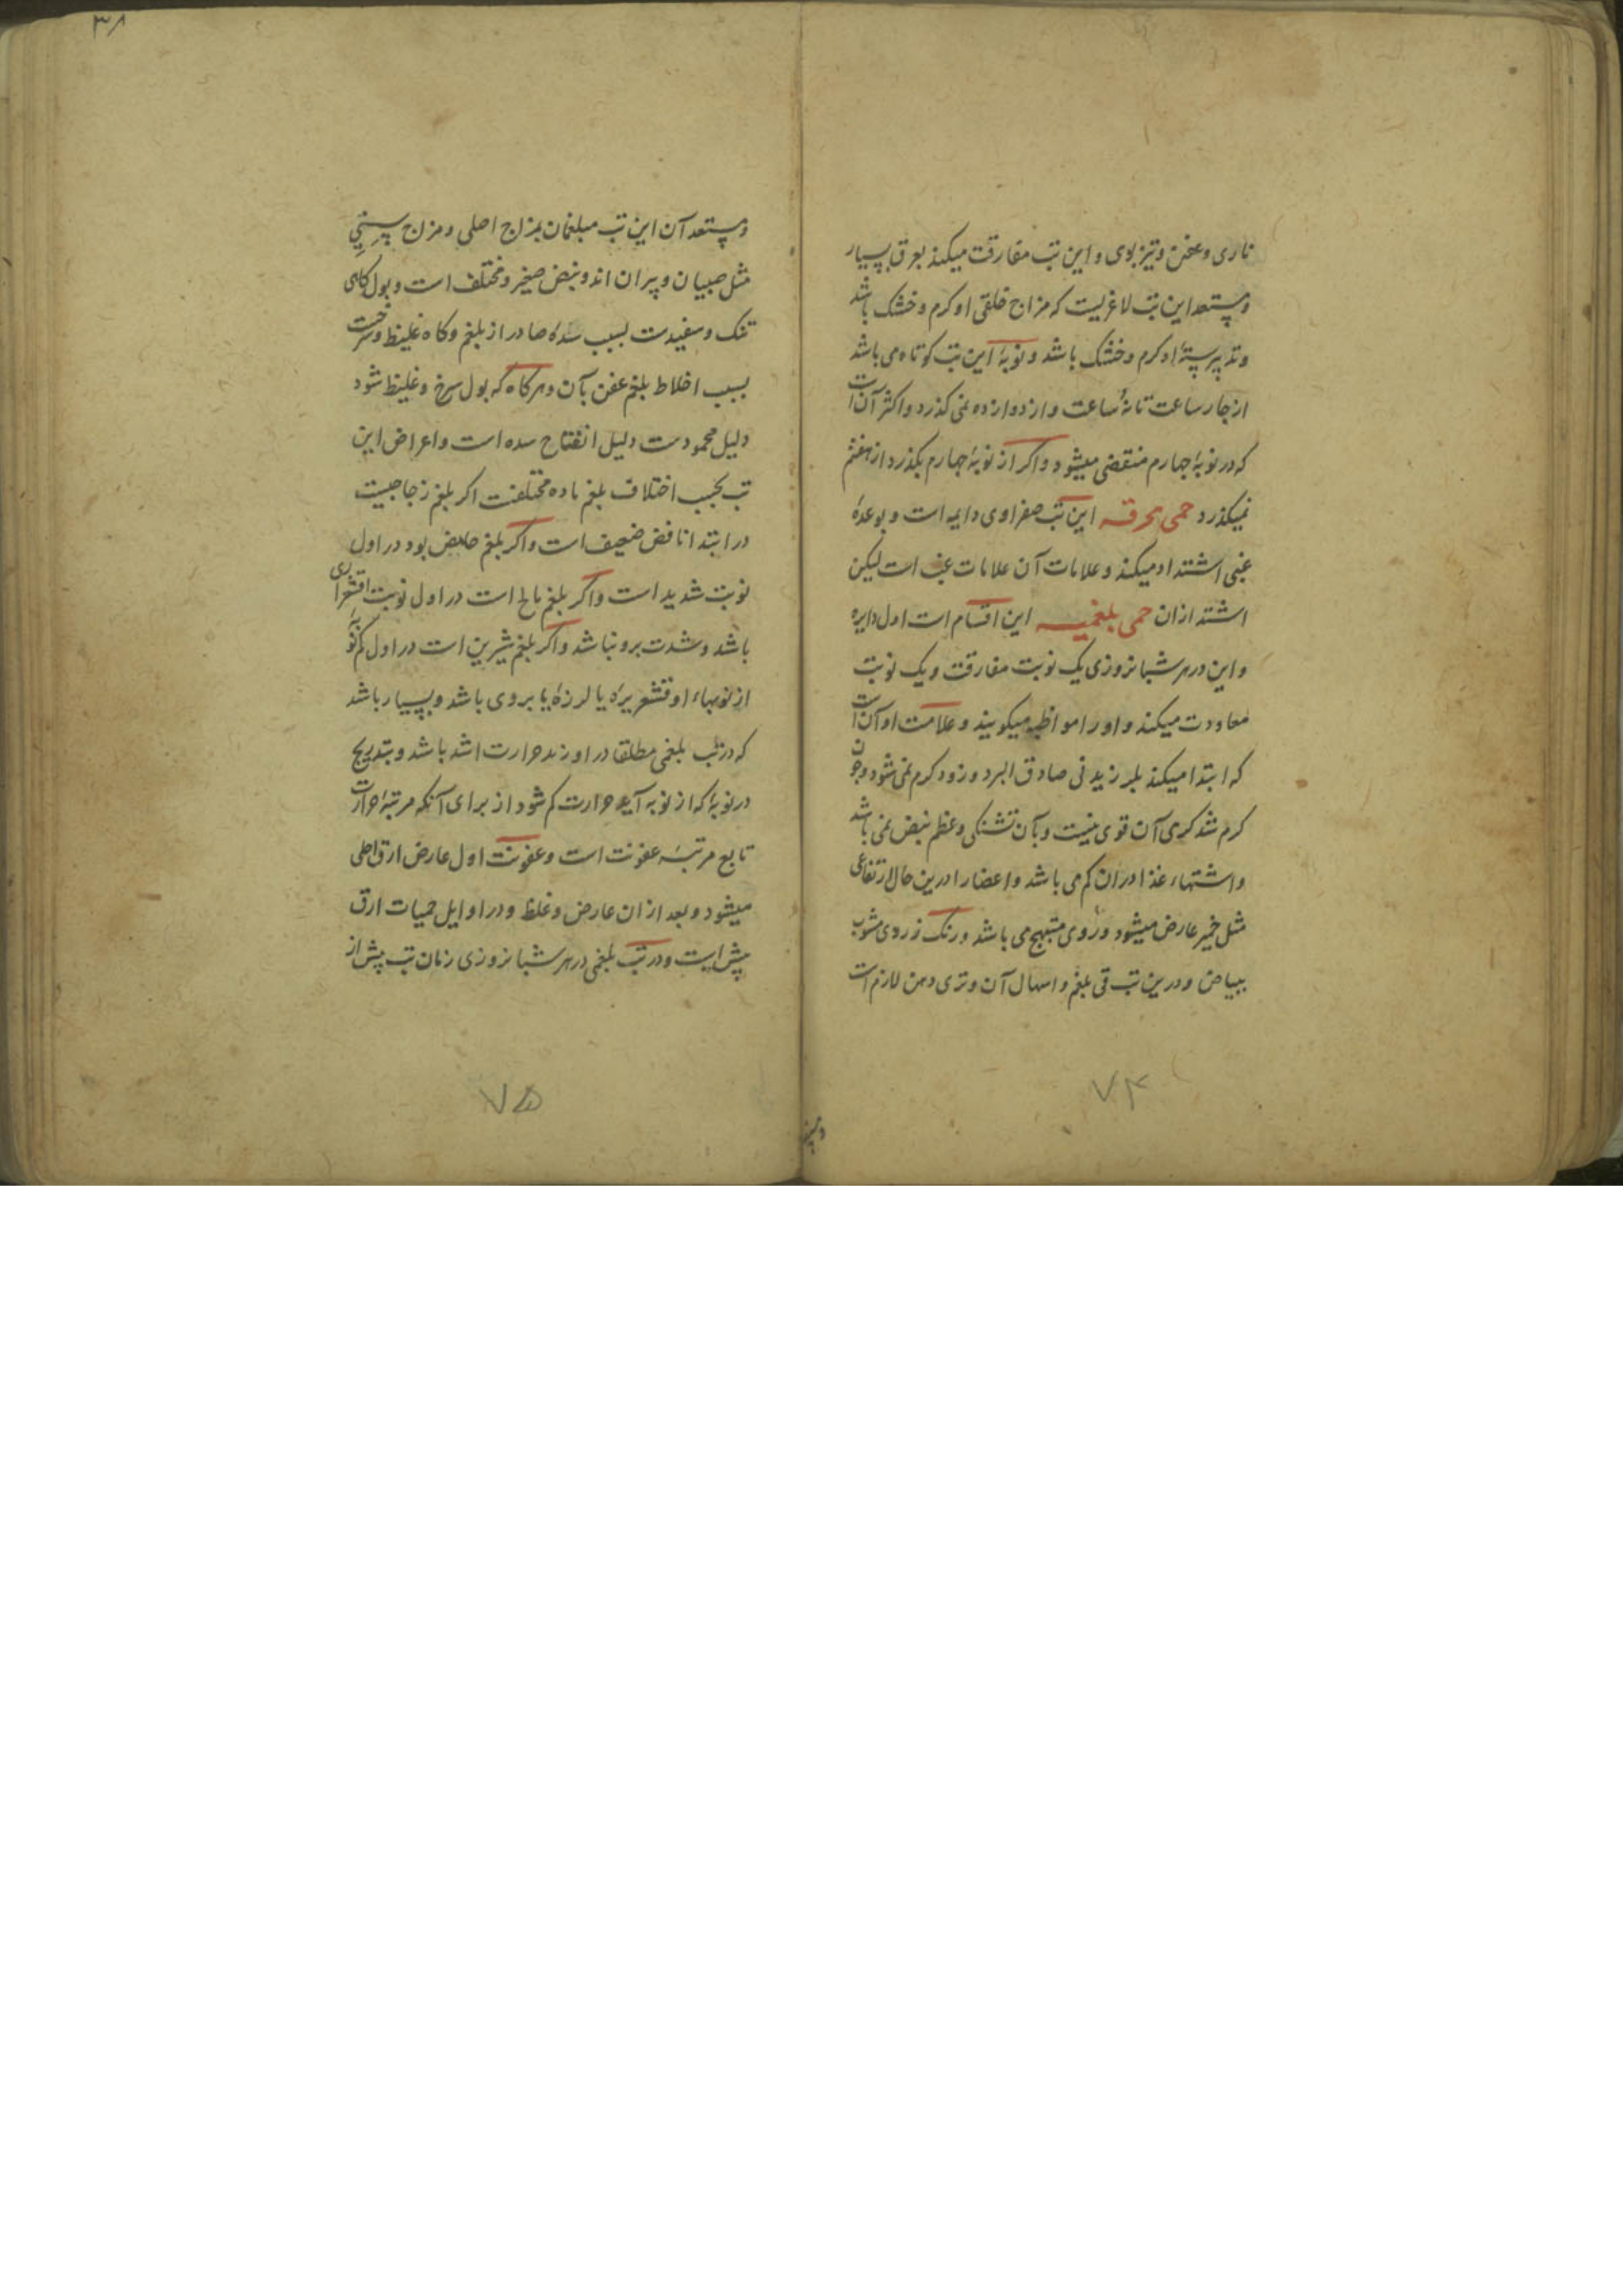 ناری و عفن و تیز بوی و این تب مفارقت میکند بعرق بسیار
و مستعد این تب لاغریست که مزاج خلقی او کرم و خشک باشد
و تدبیر سنهٔ او کرم و خشک باشد و نوبهٔ این تب کوتاه می باشد
از چار ساعت تا نه ساعت و از دوازده نمی کذرد و اکثر آن است
که در نوبهٔ چهارم منقضی میشود و اکر از نوبهٔ چهارم بکذرد از هفتم
نمیکذرد حمی محرقه این تب صفراوی دایمه است و بوعدهٔ
غبی اشتداد میکند و علامات آن علامات غب است لیکن
اشتد ازان حمی بلغمیه این اقسام است اول دایره
و این در هر شبانروزی یک نوبت مفارقت و یک نوبت
معاودت میکند و او را مواظبه میکویند و علامت او آن است
که ابتدا میکند بلرزیدنی صادق البرد و زود کرم نمی شود و چون
کرم شد کرمی آن قوی نیست و بآن تشنکی و عظم نبض نمی باشد
و اشتهاء غذا دران کم می باشد و اعضا را درین حال ارتفاعی
مثل خمیر عارض میشود و روی متبهج می باشد و رنک زردی مشوب
ببیاض و درین تب قی بلغم و اسهال آن و تری دهن لازم است
۷۴
۳۸
و مستعد آن این تب مبلغمان بمزاج اصلی و مزاج سنی
مثل صبیان و پیران اند و نبض صغیر و مختلف است و بول کاهی
تنک و سفیدست بسبب سدهٔ صادر از بلغم و کاه غلیظ و سرخست
بسبب اخلاط بلغم عفن بآن و هرکاه که بول سرخ و غلیظ شود
دلیل محمودست دلیل انفتاح سده است و اعراض این
تب بحسب اختلاف بلغم ماده مختلفست اکر بلغم زجاجیست
در ابتدا نافض ضعیف است و اکر بلغم حامض بود در اول
نوبت شدید است و اکر بلغم مالح است در اول نوبت اقشعراری
باشد و شدت برو نباشد و اکر بلغم شیرین است در اول کم نوبهٔ
از نوبهاء او قشعریرهٔ یا لرزهٔ یا بردی باشد و بسیار باشد
که در تب بلغمی مطلقا در اول حرارت اشد باشد و بتدریج
در نوبهٔ که از نوبه آید حرارت کم شود از برای آنکه مرتبهٔ حرارت
تابع مرتبهٔ عفونت است و عفونت اول عارض ارق احلی
میشود و بعد ازان عارض و غلظ و در اوایل حمیات ارق
پیش است و در تب بلغمی در هر شبانروزی زمان تب پیش از
۷۵